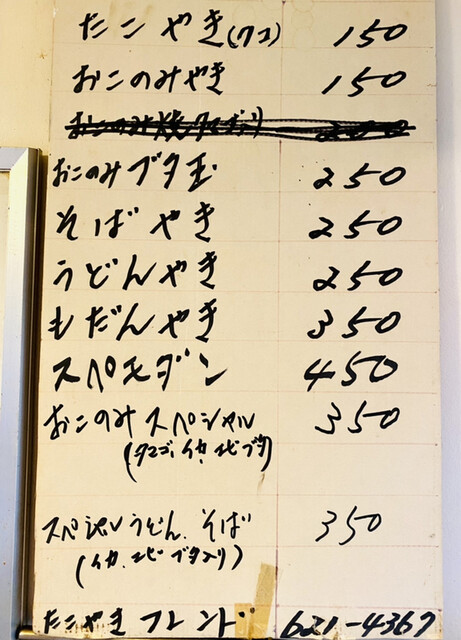 たこやき(7コ) 150
おこのみやき 150
おこのみブタ玉 250
そばやき 250
うどんやき 250
もだんやき 350
スペモダン 450
おこのみスペシャル 350
(タマゴ、イカ、エビ、ブタ)
スペシャルうどん、そば 350
(イカ、エビ、ブタ入り)
たこやき フレンド 621-4367